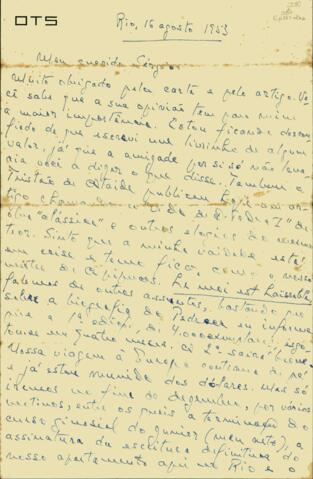 OTS
Rio, 16 agosto 1953
Meu querido Sérgio:
Muito obrigado pela carta e pelo artigo. Vo-
cê sabe que a sua opinião tem para mim
a maior importância. Estou ficando descon-
fiado de que escrevi um livrinho de algum
valor, já que a amizade por si só não leva-
ria você a dizer o que disse. Também o
Tristão de Ataíde publicou
tigo chama a vida de D. Pedro I de
"clássica" e outros elogios do mesmo
teor. Sinto que a minha vaidade está
em crise e temo ficar como o nosso
Le moi est haïssable
falemos de outros assuntos, bastando que
sobre a biografia de Pedro eu informe
que a 1ª edição, de 4.000 exemplares, esgo-
tou-se em quatro meses. 2ª sairá
Nossa viagem à Europa continua de pé
e já estou munido dos dólares. Mas só
iremos no fim de dezembro, por vários
motivos, entre os quais a terminação do
curso ginasial do Junior (meu neto), a
assinatura da escritura definitiva do
nosso apartamento aqui no Rio e o